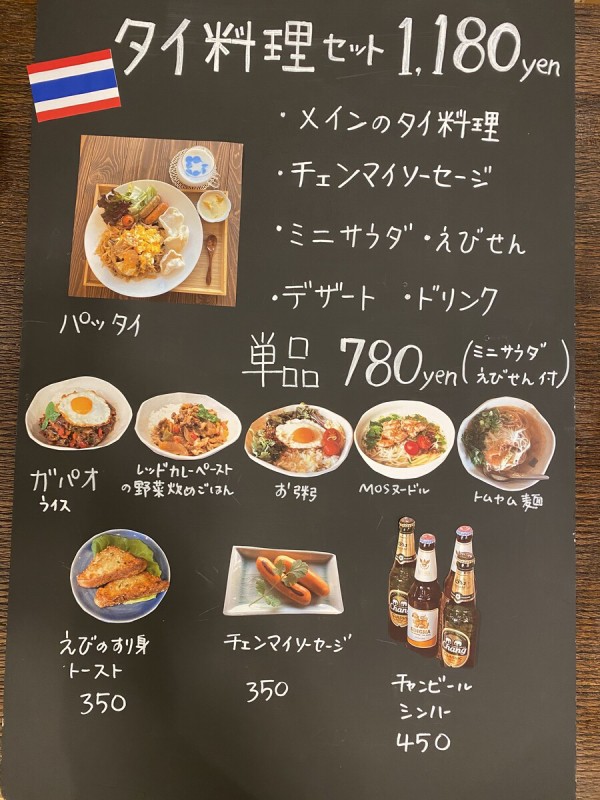 タイ料理セット 1,180yen
・メインのタイ料理
・チェンマイソーセージ
・ミニサウダ・えびせん
・デザート ・ドリンク
パッタイ
単品 780yen(ミニサウダ
えびせん付)
ガパオ
ライス
レッドカレーペースト
の野菜炊めごはん
お粥
MOSヌードル
トムヤム麺
えびのすり身
トースト
350
チェンマイソーセージ
350
チャンビール
シンハー
450
Chang
SINGHA
Chang